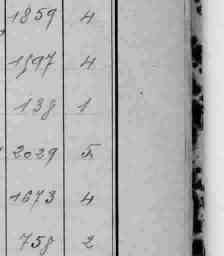 1859 4
1797 4
138 1
2029 5
1673 4
758 2